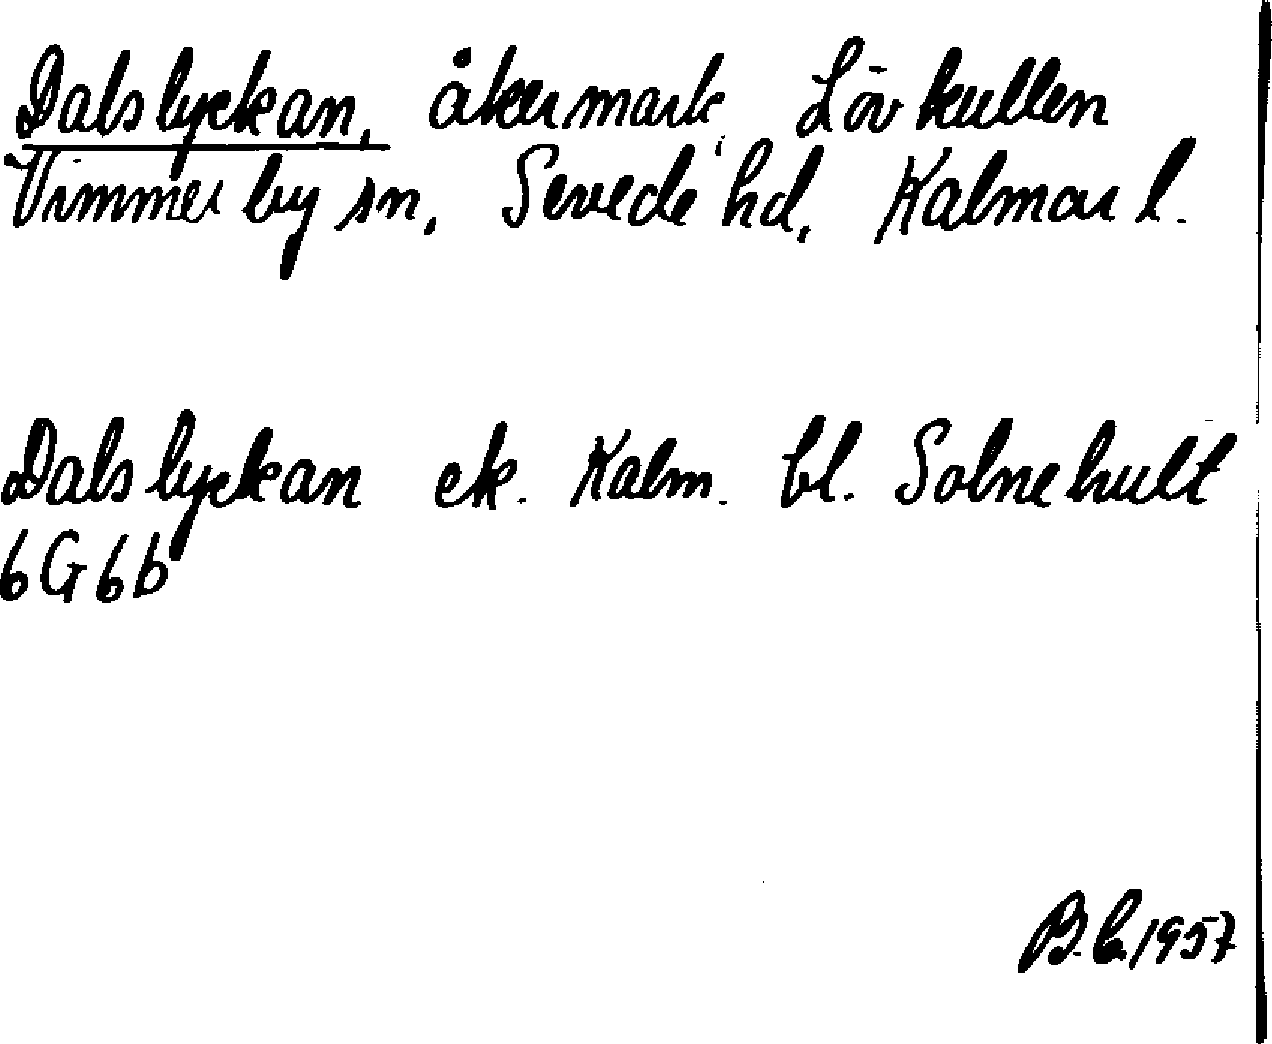 Dalslyckan, åkermark, Lövkullen
Vimmerby sn, Sevede hd, Kalmar l.
Dalslyckan ek. Kalm. bl. Solnehult
6G6b
B.C. 1957